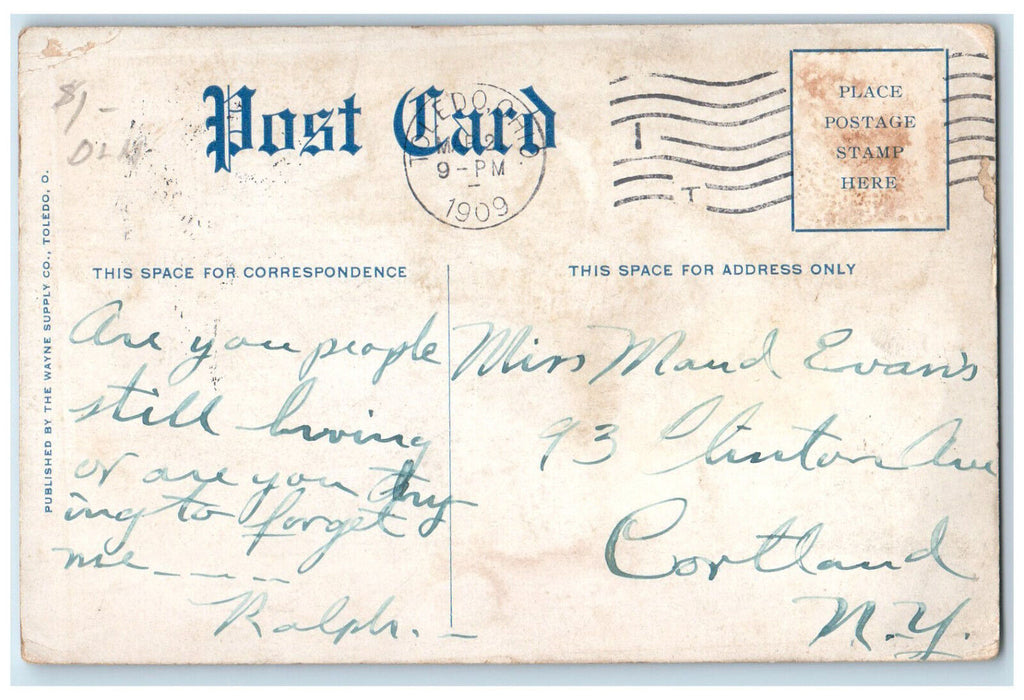 $1-
Post Card
TOLEDO, O
9-PM
1909
I
T
PLACE
POSTAGE
STAMP
HERE
PUBLISHED BY THE WAYNE SUPPLY CO., TOLEDO, O.
THIS SPACE FOR CORRESPONDENCE
Are you people
still living
or are you try
ing to forget
me____
Ralph. _
THIS SPACE FOR ADDRESS ONLY
Miss Maud Evans
93 Clinton Ave
Cortland
N.Y.